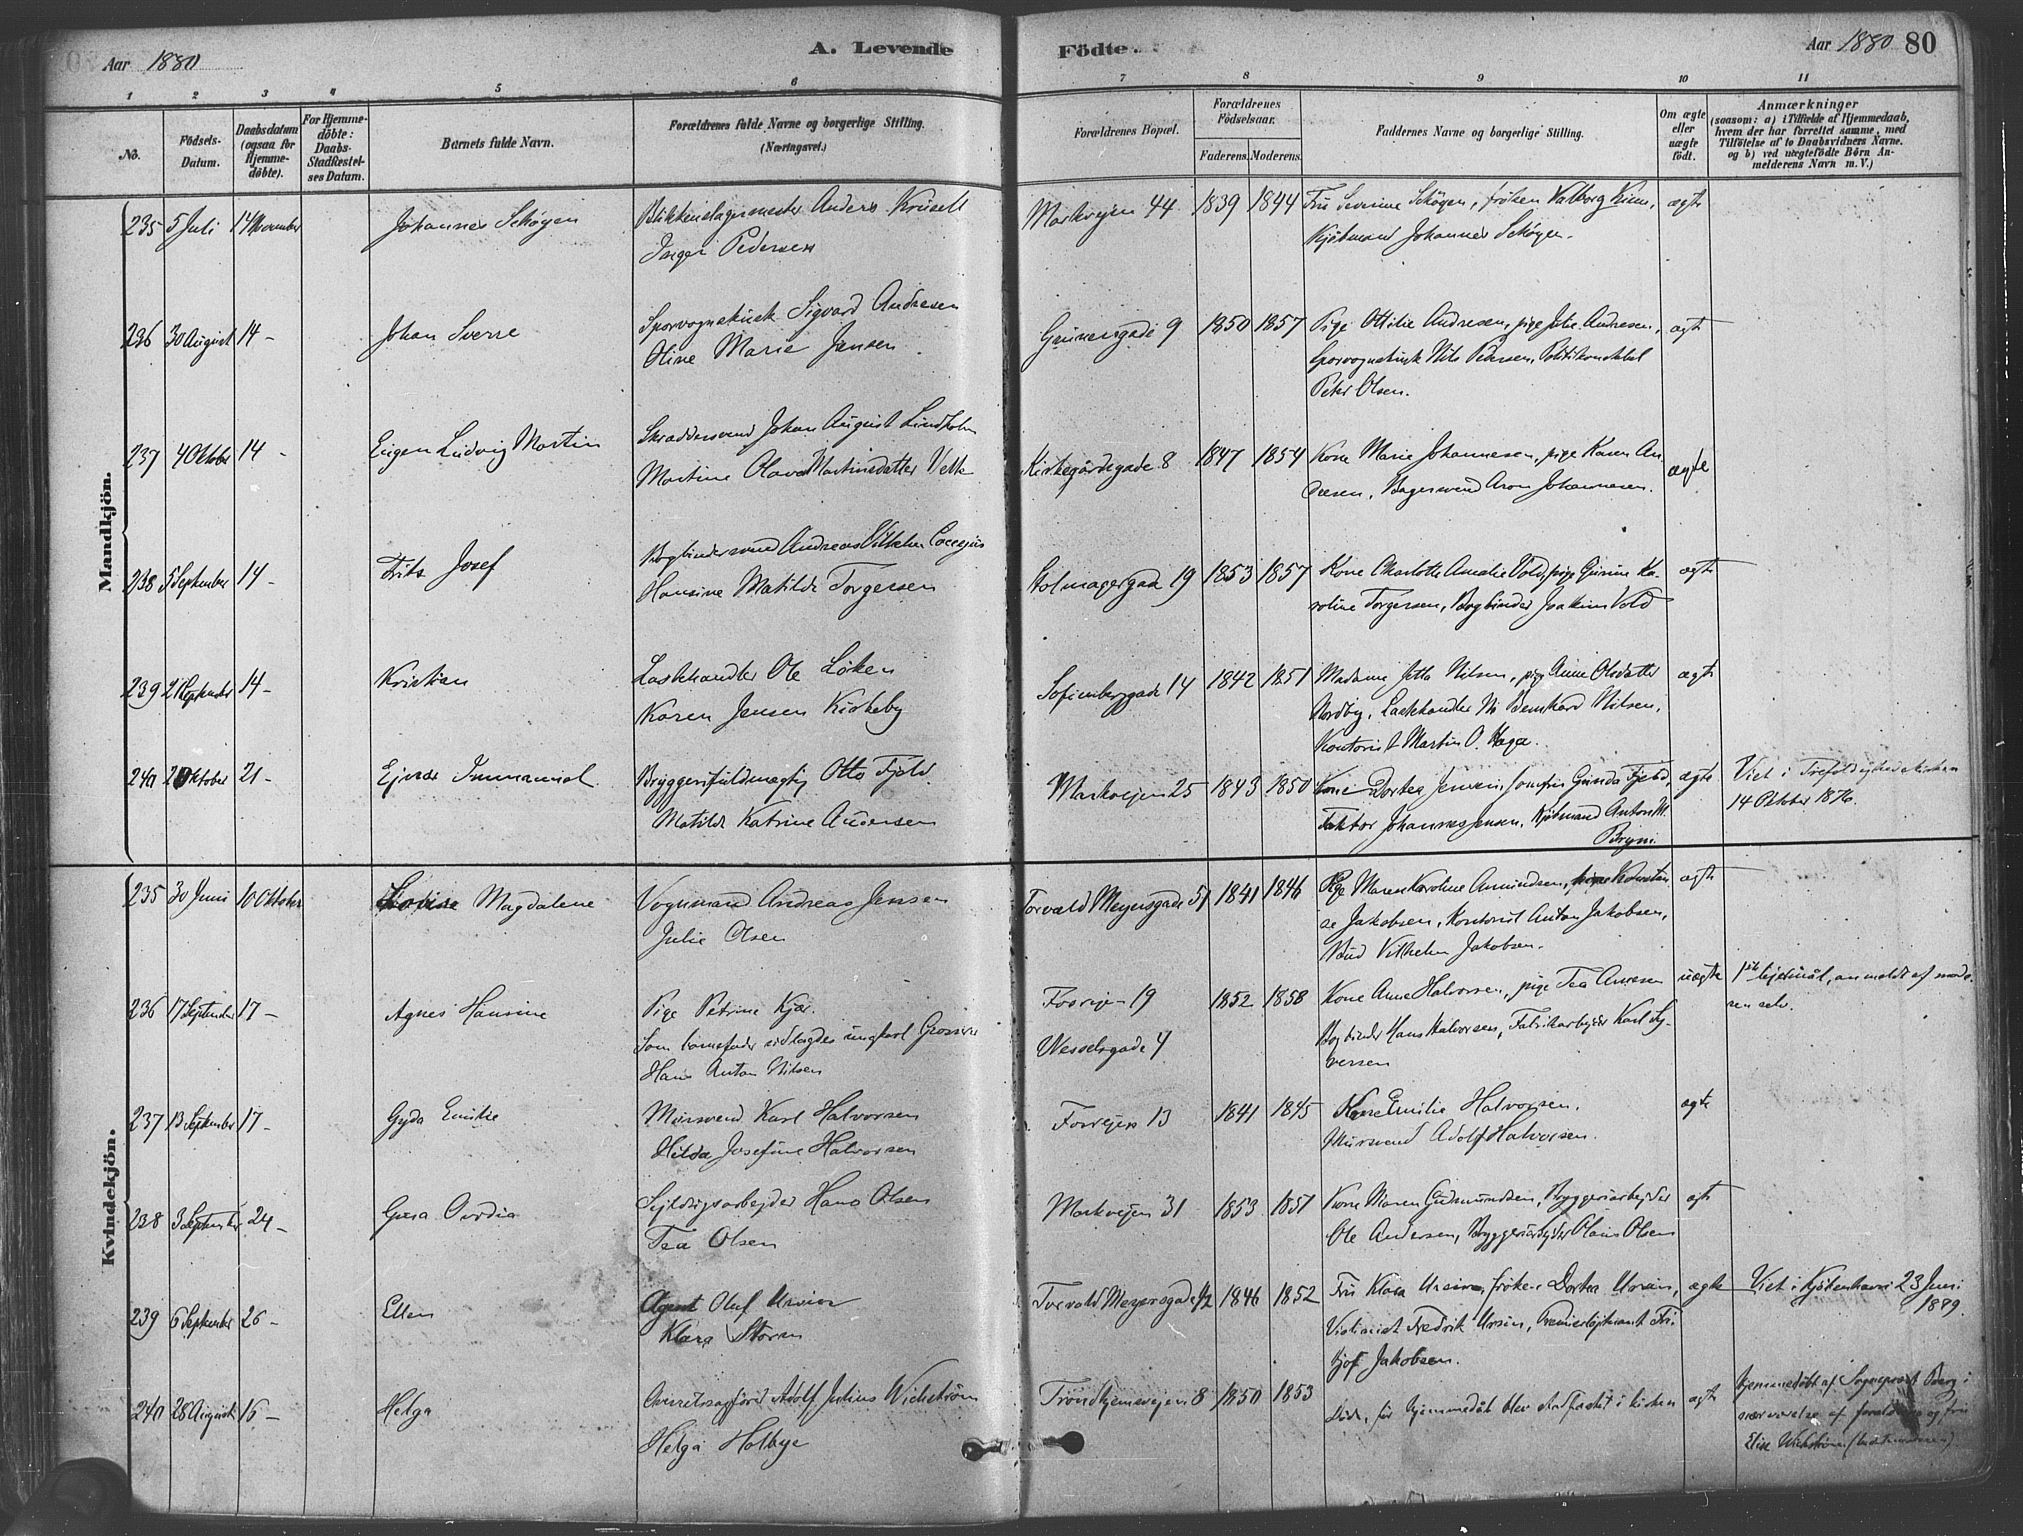 Aar 1880
A. Levende
Födte.
Aar 1880
80
1 2 3 4 5 6 7 8 9 10 11
No.
Födsels-Datum.
Daabsdatum (ogsaa for Hjemme-döbte).
For Hjemme-döbte: Daabs-Stadfæstel-ses Datum.
Barnets fulde Navn.
Forældrenes fulde Navne og borgerlige Stilling. (Næringsvei.)
Forældrenes Bopæl.
Forældrenes Födselsaar.
Faderens. Moderens.
Faddernes Navne og borgerlige Stilling.
Om ægte eller uægte födt.
Anmærkninger
(saasom: a) i Tilfælde af Hjemmedaab, hvem der har forrettet samme, med Tilföielse af to Daabsvidners Navne. og b) ved uægtefödte Börn An-melderens Navn m. V.)
Mandkjön.
235 5 Juli 14 November Johannes Schøyen Blikkenslagermester Anders Krusell Markvejen 44 1839 1844 Fru Severine Schøyen, frøken Valborg ægte
Inger Pedersen Kjøbmand Johannes Schøyen.
236 30 August 14 - Johan Sverre Sporvognskusk Sigvard Andresen Grünersgade 9 1850 1857 Pige Ottilie Andresen, pige Julie Andresen, ægte
Oline Marie Jensen. Sporvognskusk Nils Pedersen, Politikonstabel
Peter Olsen.
237 4 Oktober 14 - Eugen Ludvig Martin Skræddersvend Johan August Lindholm Kirkegårdsgade 8 1847 1854 Kone Marie Johannesen, pige Karen An- ægte
Martine Olava Martinsdatter dresen, Bagersvend Aron Johannesen.
238 5 September 14 - Frits Josef Bogbindersvend Andreas Vilhelm Stolmagergade 19 1853 1857 Kone Charlotte Amalie Vold, pige Gurine Ka- ægte
Hansine Matilde Torgersen roline Torgersen, Bogbinder Joakim Vold
239 21 September 14 - Kristian Lasthandler Ole Løken Sofienberggade 14 1842 1851 Madame Jetta Nilsen, pige Anne Olsdatter ægte
Karen Jensen Kirkeby Nordby, Lasthandler Bernhard Nilsen,
Kontorist Martin O. Haga.
240 2 Oktober 21 - Ejnar Immanuel Bryggerifuldmægtig Otto Fjeld. Markvejen 25 1843 1850 Kone Dortea Jensen, Jomfru Gunda Fjeld, ægte Viet i Trefoldighedskirken
Matilde Katrine Andersen Faktor Johannes Jensen, Kjøbmand Anton M. 14 Oktober 1876.
Bryni.
Kvindekjön.
235 30 Juni 10 Oktober Lovise Magdalene Vognmand Andreas Jensen Torvald Meyersgade 51 1841 1846 Pige Maren Karoline Amundsen, ægte
Julie Olsen se Jakobsen, Kontorist Anton Jakobsen,
Bud Vilhelm Jakobsen.
236 17 September 17 - Agnes Hansine Pige Petrine Kjær. Fosvejen 19 1852 1858 Kone Anne Halvorsen, pige Tea uægte 1ste lejermål, anmeldt af mode-
Som barnefader udlagdes ungkarl Grosserer Wesselsgade 4 Bogbinder Hans Halvorsen, Fabrikarbejder Karl Sy- ren selv.
Hans Anton Nilsen versen
237 13 September 17 - Gyda Emilie Mursvend Karl Halvorsen Fosvejen 13 1841 1845 Kone Emilie Halvorsen. ægte
Hilda Josefine Halvorsen Mursvend Adolf Halvorsen.
238 3 September 24 - Gina Ovidia Sejldugsarbejder Hans Olsen Markvejen 31 1853 1851 Kone Maren Gudmundsen, Bryggeriarbejder ægte
Tea Olsen Ole Andersen, Bryggeriarbejder Olaus Olsen
239 6 September 26 - Ellen Agent Oluf Ursin Torvald Meyersgade 1846 1852 Fru Klara Ursin, frøken Dortea Ursin, ægte Viet i Kjøbenhavn 23 Juni
Klara Storm Violinist Fredrik Ursin, Premierløjtnant Fri- 1879.
tjof Jakobsen.
240 28 August 16 - Helga Overretssagfører Adolf Julius Wichstrøm Trondhjemsvejen 8 1850 1853 Døde, før hjemmedåb blev stadfæstet i kirken ægte Hjemmedøbt af Sogneprest Berg i
Helga Holbye nærværelse af forældrene og fru
Elise Wichstrøm